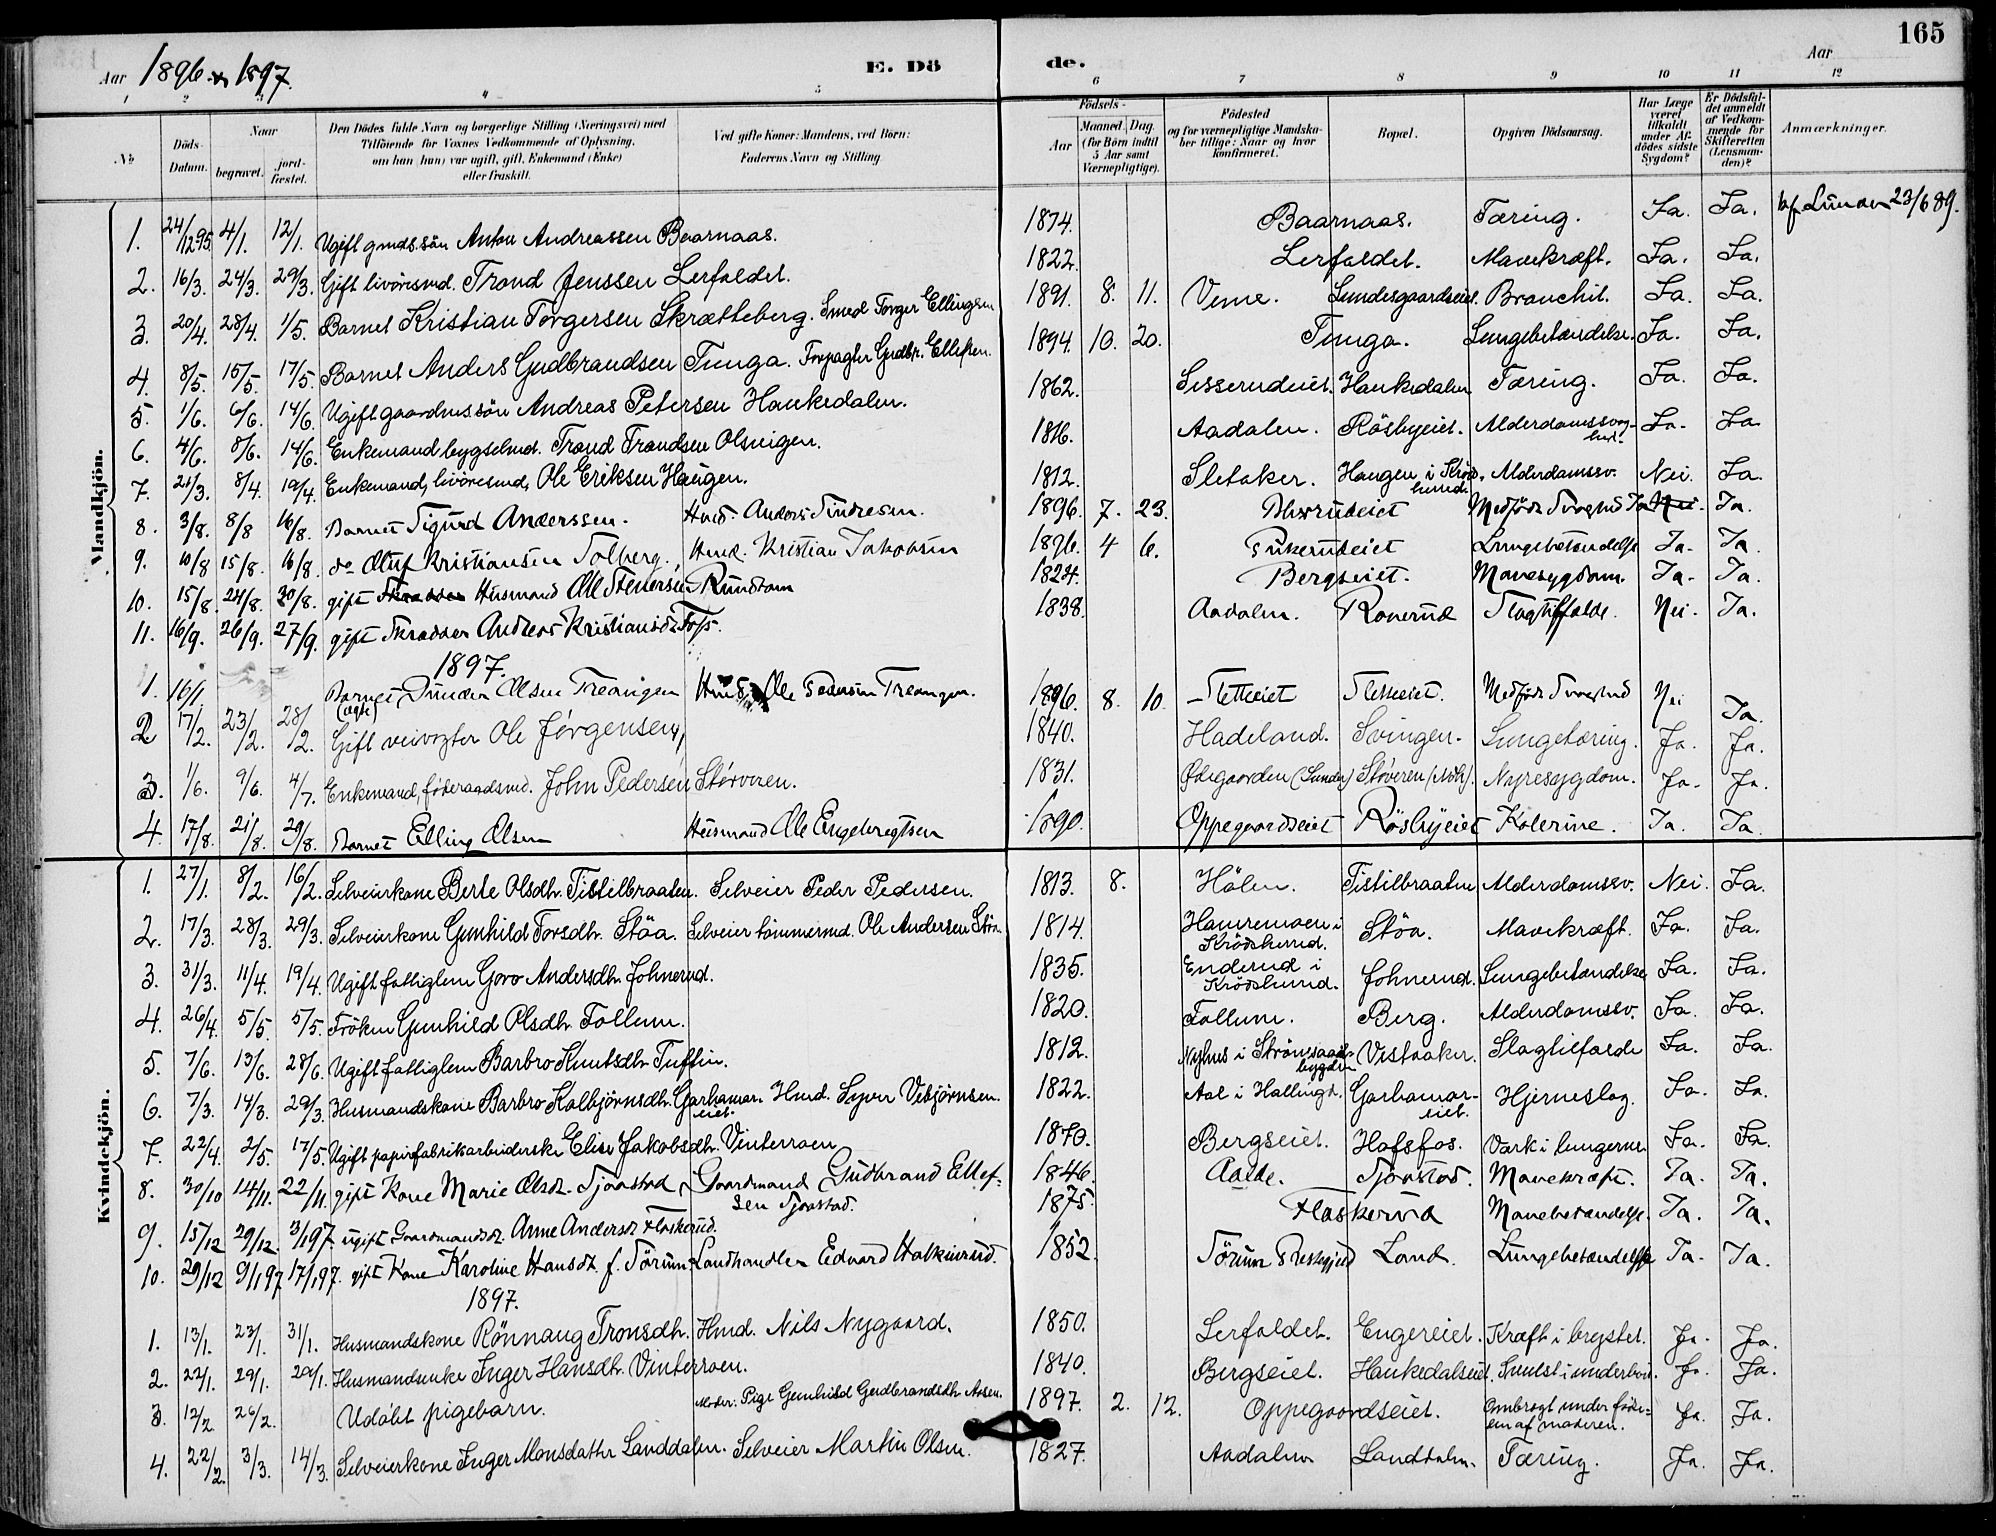 165
Aar 1896 & 1897. E. Dö de. Aar
1 2 3 4 5 6 7 8 9 10 11 12
№ Döds-Datum. Naar begravet. jord-fæstet. Den Dödes fulde Navn og borgerlige Stilling (Næringsvei) med Tilföiende for Voxnes Vedkommende af Oplysning, om han (hun) var ugift, gift, Enkemand (Enke) eller fraskilt. Ved gifte Koner: Mandens, ved Börn: Faderens Navn og Stilling. Födsels- Aar Maaned. Dag. (for Börn indtil 5 Aar samt Værnepligtige). Födested og for værnepligtige Mandskaber tillige: Naar og hvor konfirmeret. Bopæl. Opgiven Dödsaarsag. Har Læge været tilkaldt under Afdödes sidste Sygdom? Er Dödsfaldet anmeldt af Vedkommende for Skifteretten (Lensmanden)? Anmærkninger.
Mandkjön.
1. 24/12 95 4/1. 12/1. Ugift gmdssön Anton Andreassen Baarnaas. 1874. Baarnaas. Tæring. Ja. Ja. Lunder 23/6 89.
2. 16/3. 24/3. 29/3. Gift livöresmd. Trond Jenssen Lerfaldet. 1822. Lerfaldet. Mavekræft. Ja. Ja.
3. 20/4. 28/4. 1/5. Barnet Kristian Torgersen Skrætteberg. Smed Torger Ellingsen 1891. 8. 11. Veme. Lundesgaardseiet. Bronchit. Ja. Ja.
4. 8/5. 15/5. 17/5. Barnet Anders Gudbrandsen Tunga. Forpagter Gudbr. Ellefsen. 1894. 10. 20. Tunga. Lungebetændelse. Ja. Ja.
5. 1/6. 6/6. 14/6. Ugift gaardmssön Andreas Petersen Haukedalen. 1862. Sisserudeiet. Haukedalen Tæring. Ja. Ja.
6. 4/6. 8/6. 14/6. Enkemand bygselmd. Trond Trondsen Olsvigen. 1816. Aadalen. Rösbyeiet. Alderdomssvaghed. Ja. Ja
7. 21/3. 8/4. 19/4. Enkemand, livöresmd, Ole Eriksen Haugen. 1812. Sletaker. Haugen i Krödsherred. Alderdomssv. Nei. Ja.
8. 3/8. 8/8 16/8. Barnet Sigurd Anderssen. Hmd. Anders Sindresen. 1896. 7. 23. Medfödt Svaghed Ja Nei. Ja.
9. 10/8 15/8. 16/8. do Oluf Kristiansen Solberg. Hmd. Kristian Jakobsen 1896. 4 6. Lungebetændelse Ja. Ja.
10. 15/8. 24/8. 30/8. gift Husmand Ole Stenersen Rundtom 1824. Bergseiet. Mavesygdom. Ja. Ja.
11. 16/9. 26/9. 27/9. gift Skrædder Anders Kristiansen Fos. 1838. Aadalen. Rönerud Slagtilfælde. Nei. Ja.
1897.
1. 16/1. Barnet (ægte) Gunder Olsen Treangen Hmd. Ole Pedersen Treangen. 1896. 8. 10. Sletteeiet Sletteeiet. Medfödt Svaghed Nei Ja.
2. 17/2. 23/2. 28/2. Gift veivogter Ole Jörgensen, 1840. Hadeland. Svingen. Lungetæring. Ja. Ja.
3. 1/6. 9/6. 4/7. Enkemand, föderaadsmd. John Pedersen Störveren. 1831. Ödegaarden (Lunder) Stöveren Nyresygdom. Ja. Ja.
4. 17/8. 21/8. 29/8. Barnet Elling Olsen Husmand Ole Engebregtsen 1890. Oppegaardseiet Rösbyeiet Kolerine. Ja. Ja.
Kvindekjön.
1. 27/1. 8/2. 16/2. Selveierkone Berte Olsdtr. Tistilbraaten. Selveier Peder Pedersen. 1813. 8. Hölen. Tistilbraaten Alderdomssv. Nei. Ja.
2. 17/3. 28/3. 29/3. Selveierkone Gunhild Torsdtr. Stöa. Selveier tömmermd. Ole Andersen Stöa. 1814. Hamremoen i Krödsherred. Stöa. Mavekræft. Ja. Ja.
3. 31/3. 11/4. 19/4. Ugift fattiglem Goro Andersdtr. Johnerud. 1835. Enderud i Krödsherred. Johnerud. Lungebetændelse Ja. Ja.
4. 26/4. 5/5. 5/5. Fröken Gunhild Olsdtr. Follum. 1820. Follum. Berg. Alderdomssv. Ja. Ja.
5. 7/6. 13/6. 28/6. Ugift fattiglem Barbro Knutsdtr. Tuftin. 1812. Nyhus i Strömsaadbygden Vestaaker. Slagtilfælde Ja. Ja.
6. 7/3. 14/3. 29/3. Husmandskone Barbro Kolbjörnsdtr. Garhamareiet. Hmd. Syver Vebjörnsen. 1822. Aal i Hallingd. Garhamareiet. Hjerneslag. Ja. Ja.
7. 22/4. 2/5. 17/5. Ugift papirfabrikarbeiderske Elise Jakobsdtr. Vinterroen 1870. Bergseiet. Hofsfos. Værk i lungerne Ja. Ja.
8. 30/10 14/11. 22/11. gift Kone Marie Olsdt. Tjorstad Gaardmand Gudbrand Ellefsen Tjorstad. 1846. Aaide. Tjorstad. Mavekræft. Ja. Ja.
9. 15/12 29/12. 3/1 97. ugift Gaardmandsdt. Anne Andersdt Flaskerud. 1875. Flaskerud Mavebetændelse. Ja. Ja.
10. 29/12 9/1 97 17/1 97. gift Kone Karoline Hansdt. f. Sörum. Landhandler Edvard Halkinrud. 1852. Sörum Land. Lungebetændelse Ja. Ja.
1897.
1. 13/1. 23/1. 31/1. Husmandskone Rönnaug Tronsdtr. Hmd. Nils Nygaard. 1850. Lerfaldet. Engereiet. Kræft i brystet. Ja. Ja.
2. 22/1. 29/1. 29/1. Husmandsenke Inger Hansdtr. Vinterroen. 1840. Bergseiet. Haukedalseiet. Svulst i underlivet. Ja. Ja.
3. 12/2. 26/2. Udöbt pigebarn. Moder: Pige Gunhild Gudbrandsdtr. Aasen. 1897. 2. 12. Oppegaardseiet. Ombragt under födselen af moderen. Ja. Ja.
4. 22/2. 3/3. 14/3. Selveierkone Inger Monsdatter Landdalen. Selveier Martin Olsen. 1827. Aadalen Landdalen. Tæring. Ja. Ja.